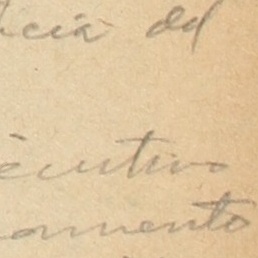 ncia del
ecutivo
amento